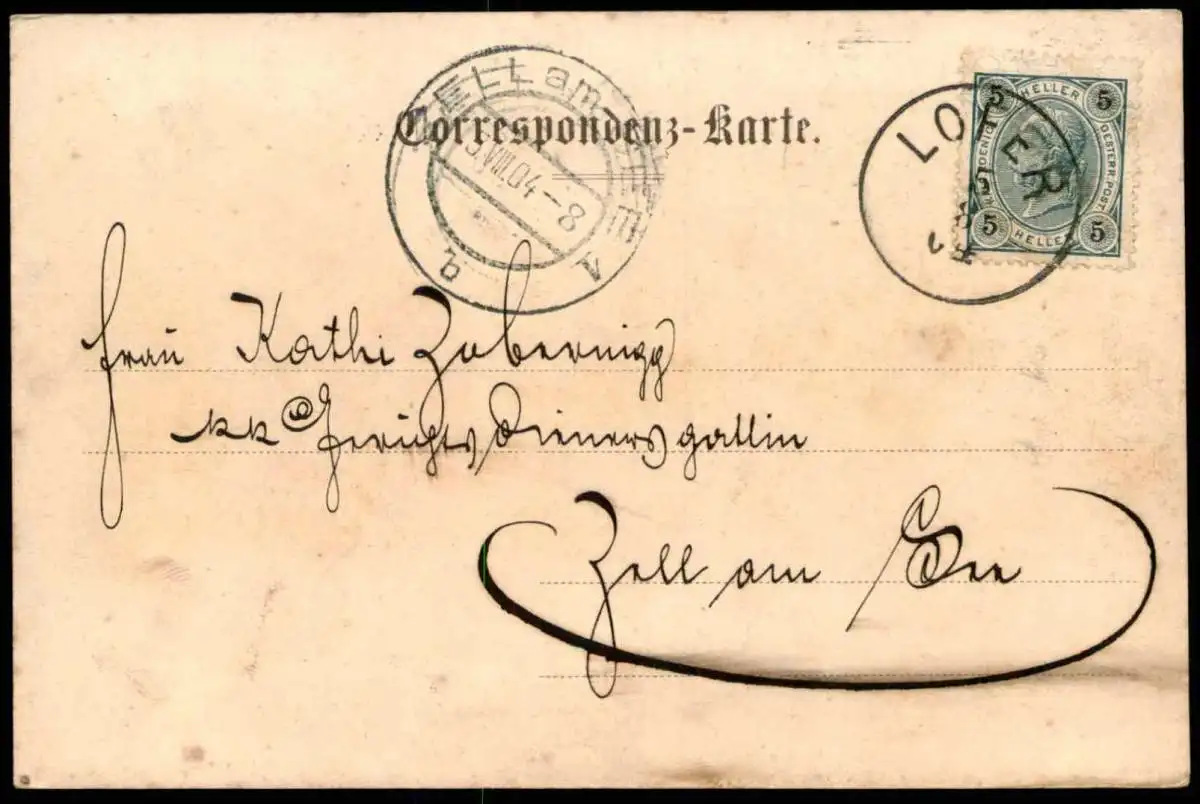 ZELL am SEE
Correspondenz-Karte.
VIII.04-8
b
LOFER
5 HELLER 5
OESTERR. POST
5 HELLER 5
Frau Kathi Zobernigg
kk Gerichts Dieners gattin
Zell am See